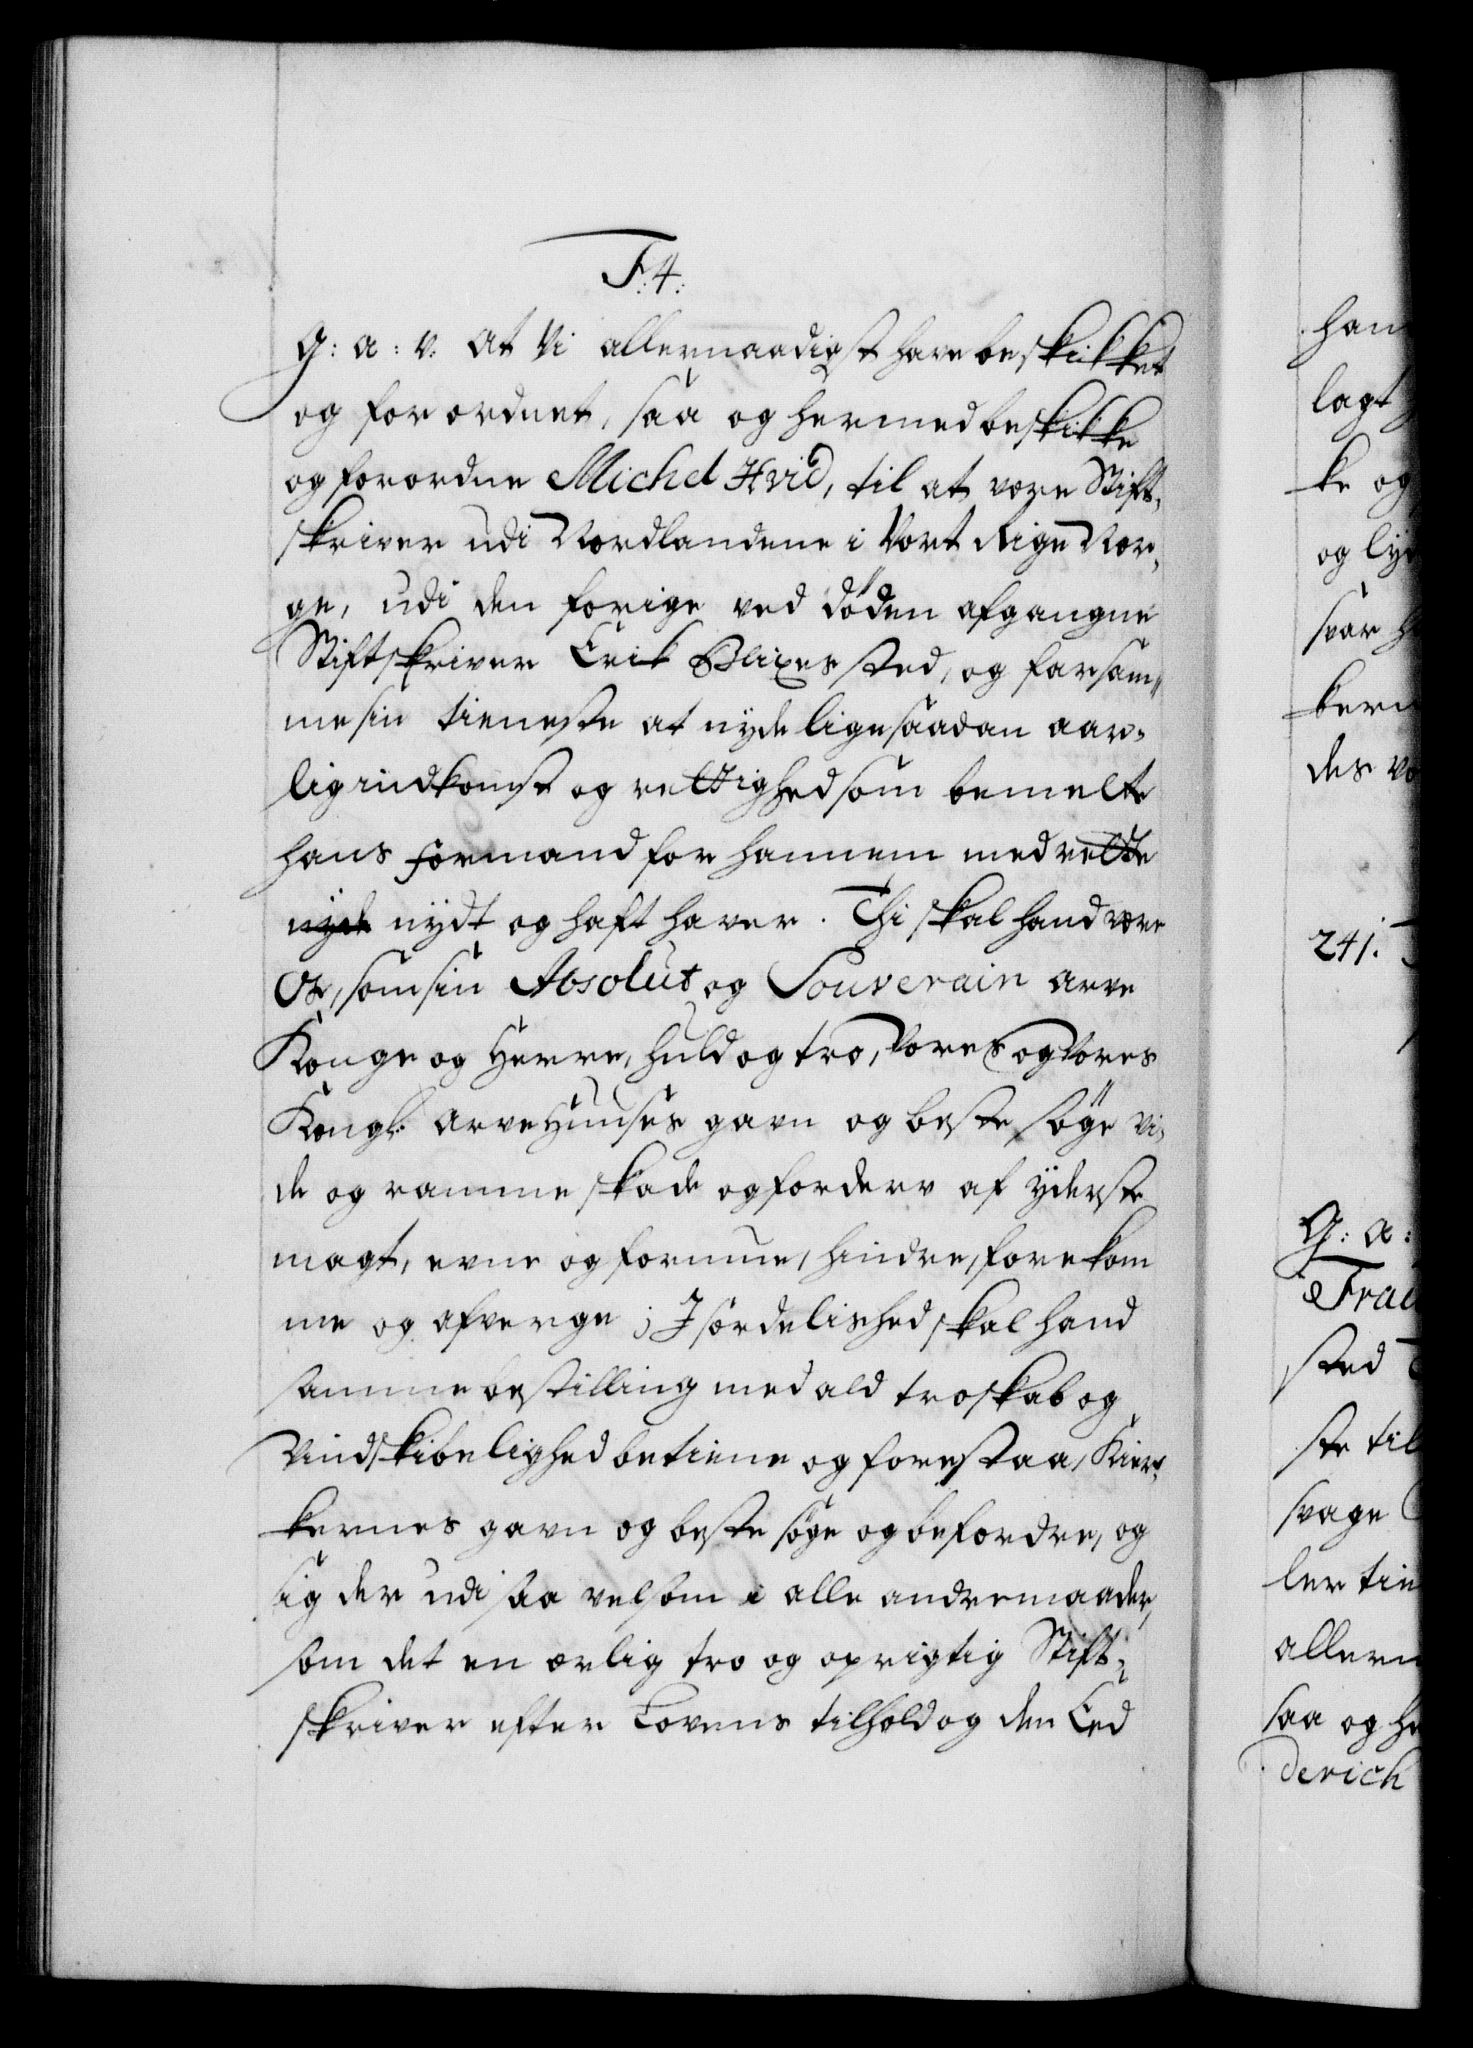 F:4:
G: a: v. At Vi allernaadigst have beskikket
og forordnet, saa og hermed beskikke
og forordne Michel Hvid, til at være Stift-
skriver udi Nordlandene i Vort Rige Nor-
ge, udi den forige ved døden afgangne
Stiftskriver Erik Blixes sted, og for sam-
me sin tieneste at nyde ligesaadan aar-
lig indkomst og rettighed som bemelte
hans Formand for hannem med rette
nyde nydt og haft haver. Thi skal hand være
Os, som sin Absolut og Souverain arve
Konge og Herre, huld og tro, Vores og Vores
Kongl: arve Huuses gavn og beste søge vi-
de og ramme skade og forderv af yderste
magt, evne og formue, hindre, forekom
me og afverge; J særdelished skal hand
samme bestilling med ald troskab og
Vindskibelighed betiene og forestaa, Kier-
kernes gavn og beste søge og befordre, og
sig der udi saa velsom i alle andre maader,
som det en ærlig tro og oprigtig Stift-
skriver efter Lovens tilhold og den Eed
han
lagt
ke og
og lyd
svar
kern
des
241.
G: a:
sted
ste til
svage
ler tie
allern
saa og he
derich